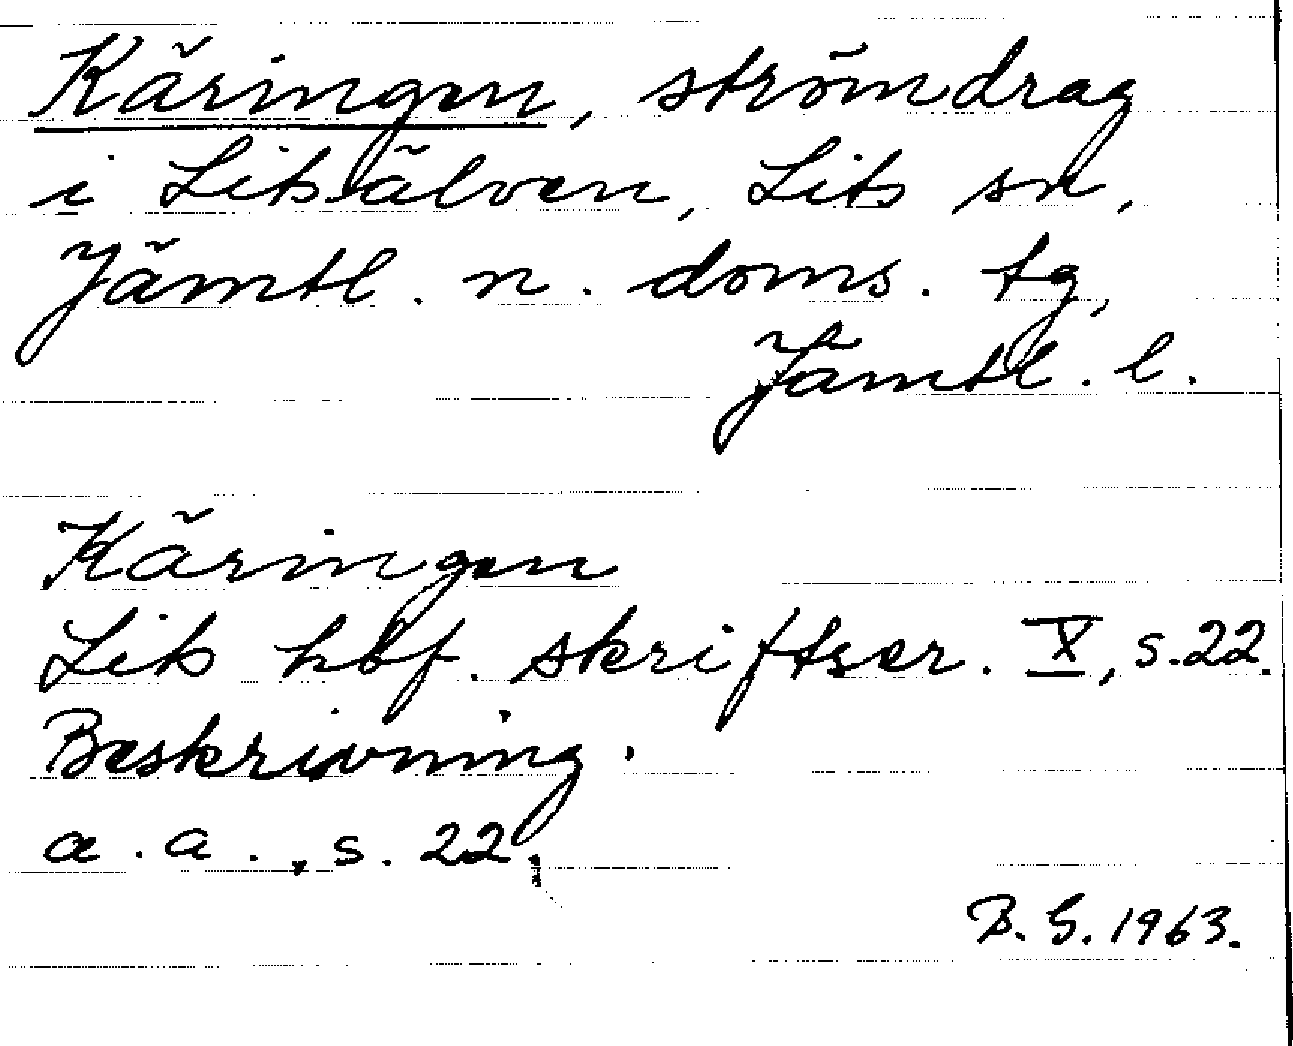 Käringen, strömdrag
i Litsälven, Lits sn,
Jämtl. n. doms. tg,
Jämtl. l.
Käringen
Lits hbf. skriftser. X, s. 22.
Beskrivning.
a. a., s. 22.
B. G. 1963.